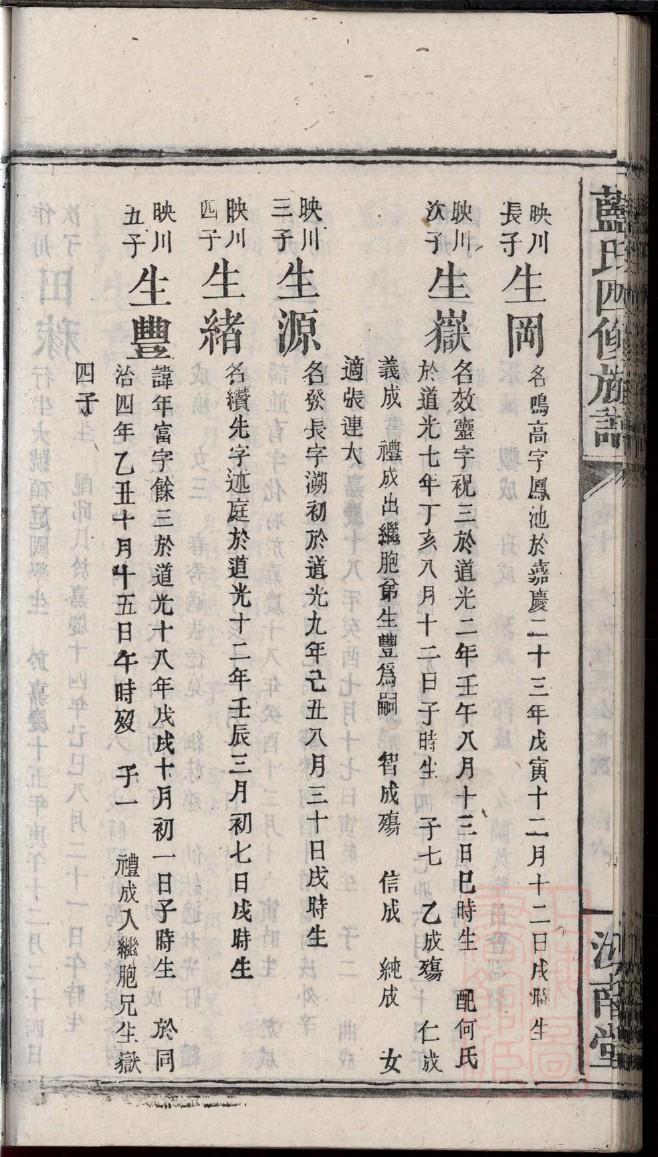 藍氏四修族譜
汝南堂
映川
長子
生岡
名鳴高字鳳池於嘉慶二十三年戊寅十二月十二日戌時生
映川
次子
生嶽
名效靈字祝三於道光二年壬午八月十三日巳時生 配何氏
於道光七年丁亥八月十二日子時生 子七 乙成殤 仁成
義成 禮成出繼胞弟生豐爲嗣 智成殤 信成 純成 女
適張連大
映川
三子
生源
名發長字溯初於道光九年己丑八月三十日戌時生
映川
四子
生緒
名纘先字迹庭於道光十二年壬辰三月初七日戌時生
映川
五子
生豐
諱年富字餘三於道光十八年戊戌十月初一日子時生 於同
治四年乙丑十月十五日午時歿 子一 禮成入繼胞兄生嶽
四子